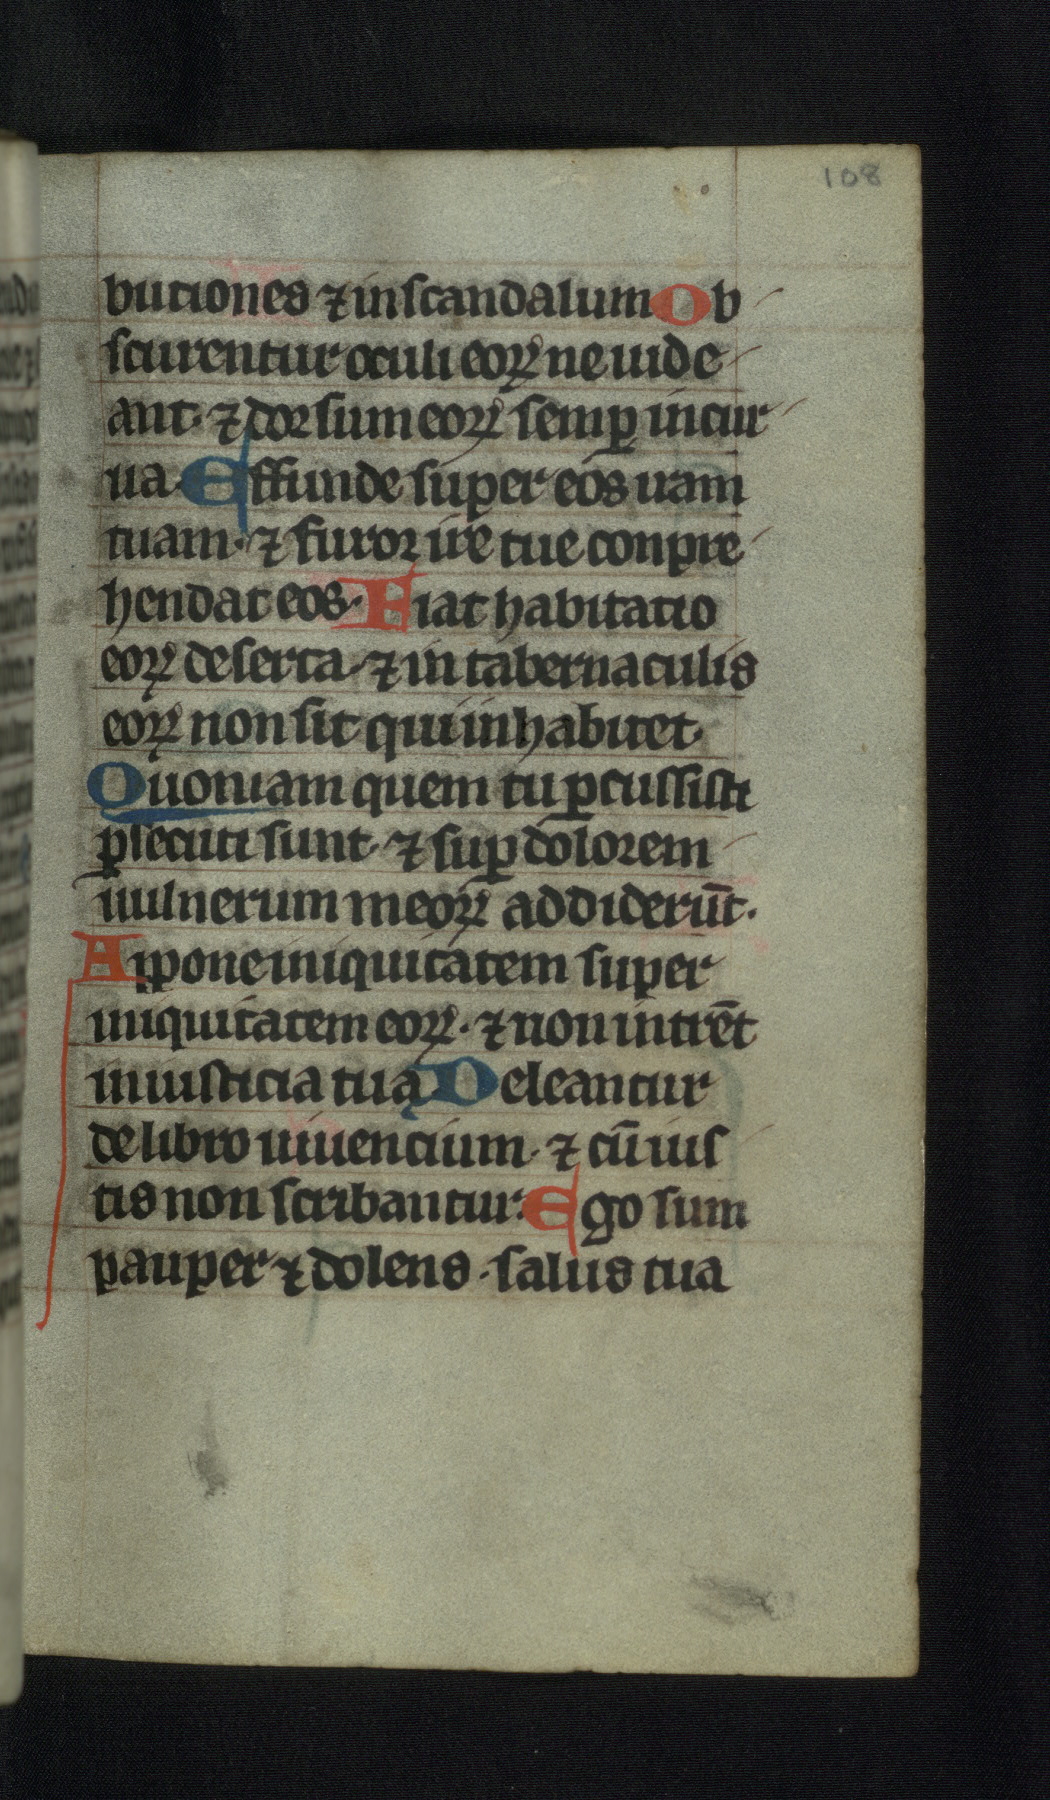 108
butiones ⁊ in scandalum Ob
scurentur oculi eoꝝ ne uide
ant· ⁊ dorsum eoꝝ semꝑ incur
ua· Effunde super eos iram
tuam· ⁊ furor ire tue conpre
hendat eos· Fiat habitatio
eoꝝ deserta· ⁊ in tabernaculis
eoꝝ non sit qui inhabitet·
Quoniam quem tu ꝑcussisti
ꝑsecuti sunt· ⁊ suꝑ dolorem
uulnerum meoꝝ addiderūt·
Aipone iniquitatem super
iniquitatem eoꝝ· ⁊ non intrēt
in iusticia tua Deleantur
de libro uiuencium· ⁊ cū ius
tis non scribantur· Ego sum
pauper ⁊ dolens· salus tua